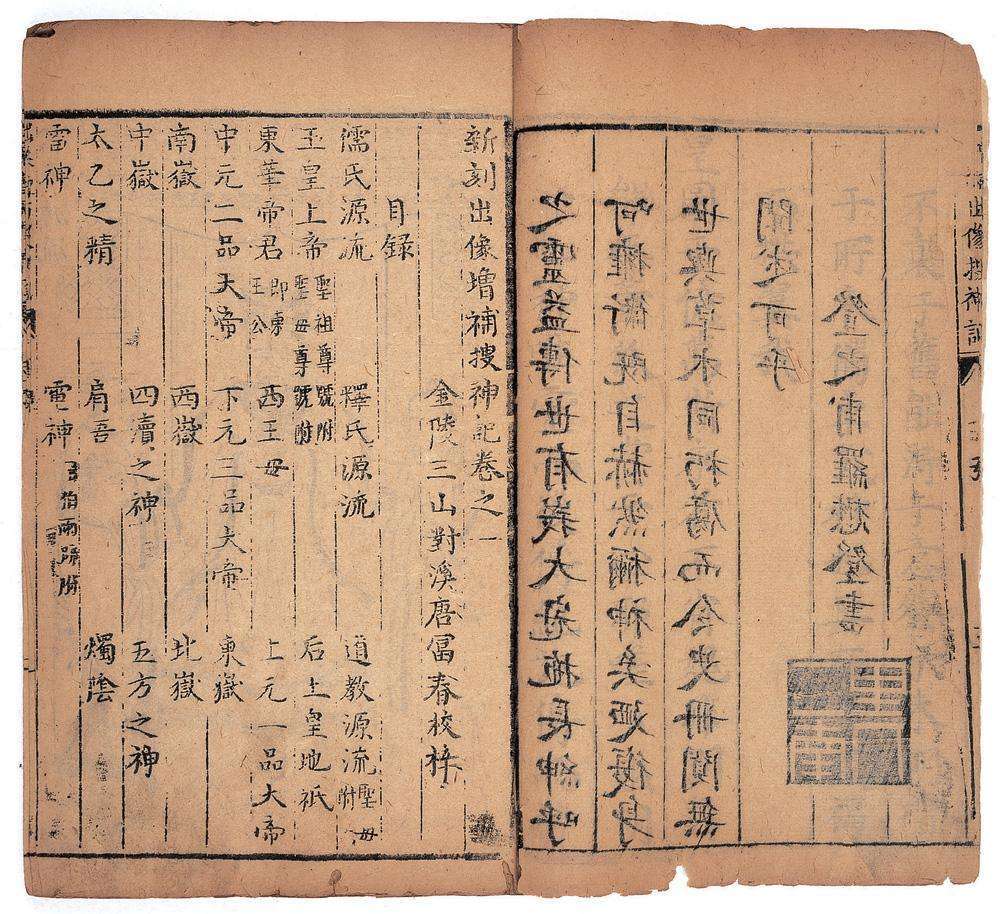 出像搜神記
之靈益傳世有峩大冠拖長紳呼
呵擁衛既自赫然稱神矣迺後身
世與草木同朽腐而令史冊闃無
聞述可乎
登之甫羅懋登書
新刻出像增補搜神記卷之一
金陵三山對溪唐富春校梓
目錄
儒氏源流 釋氏源流 道教源流 聖母附
玉皇上帝 聖祖尊號附 聖母尊號附 后土皇地祇
東華帝君 即東王公 西王母 上元一品大帝
中元二品大帝 下元三品大帝 東嶽
南嶽 西嶽 北嶽
中嶽 四瀆之神 五方之神
太乙之精 肩吾 燭陰
雷神 電神 伯雨師附